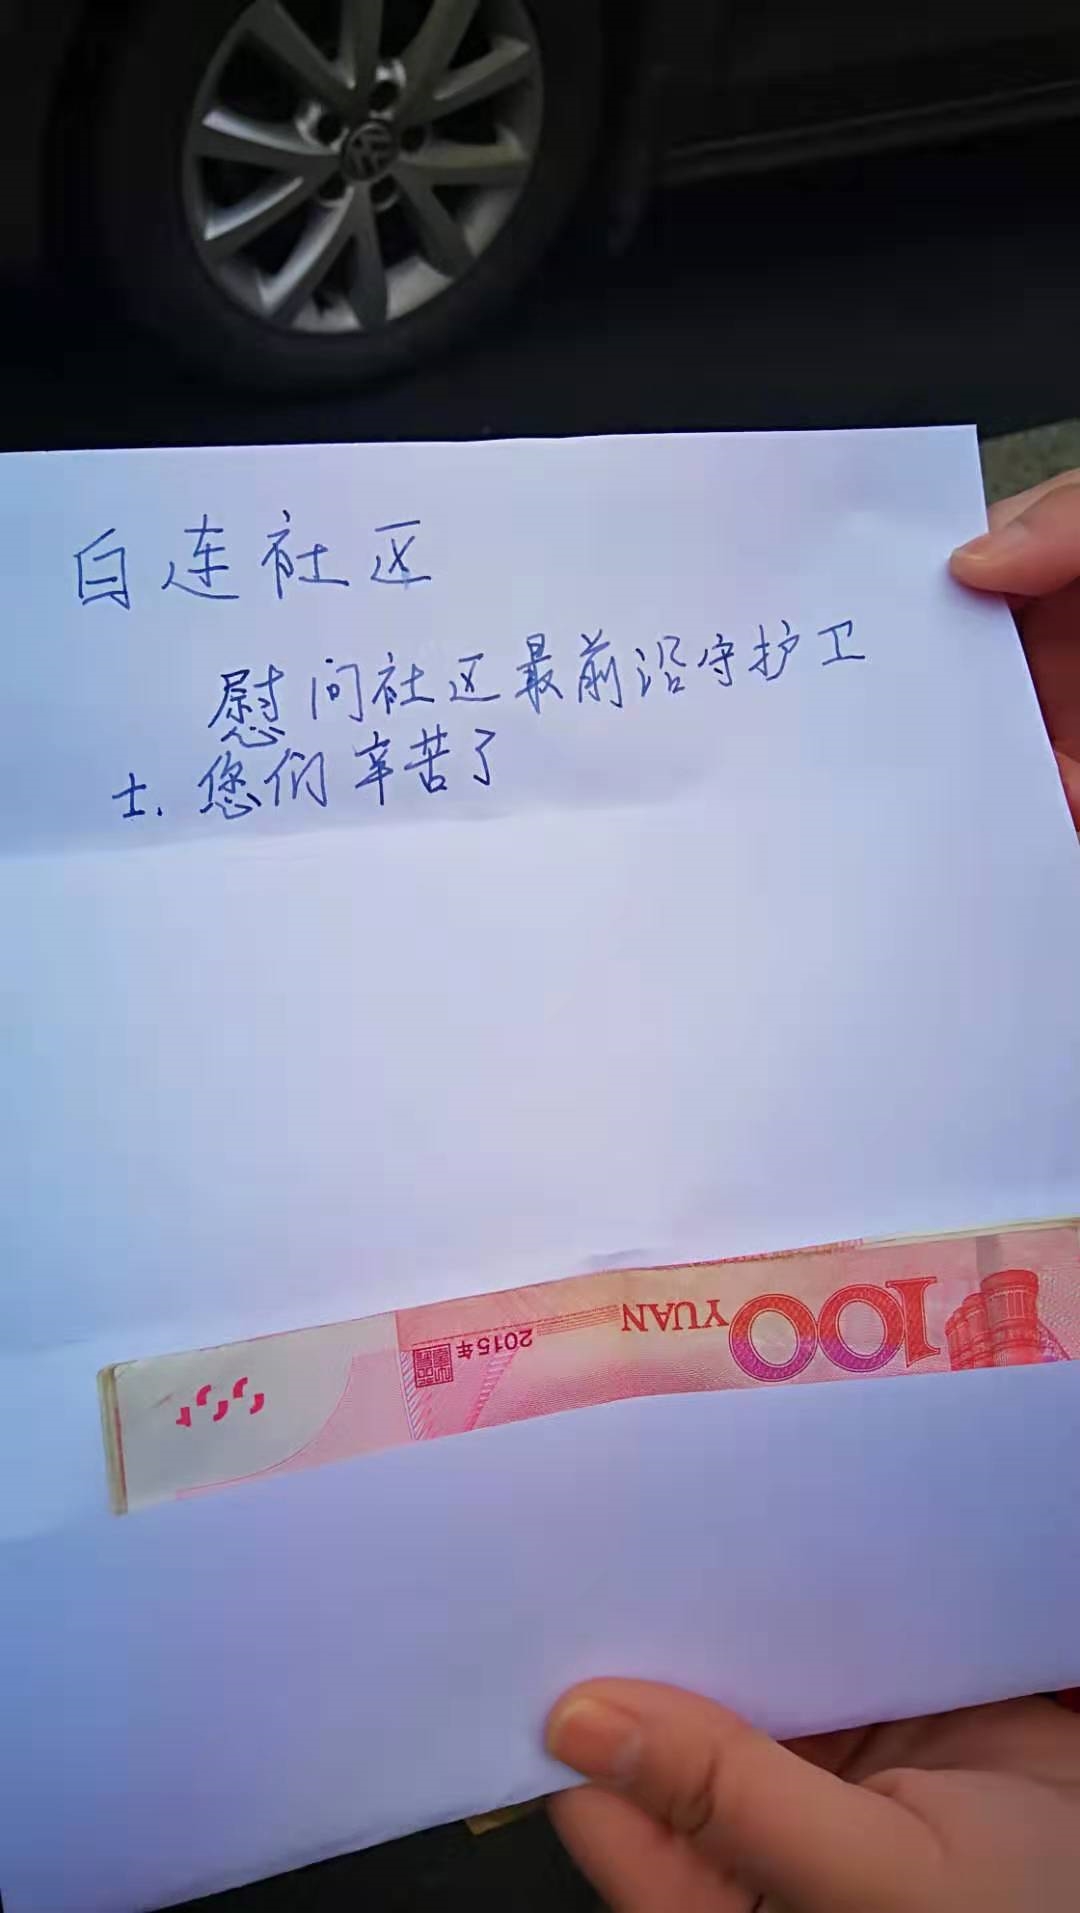 白连社区
慰问社区最前沿守护卫
士.您们辛苦了
2015年
YUAN
100